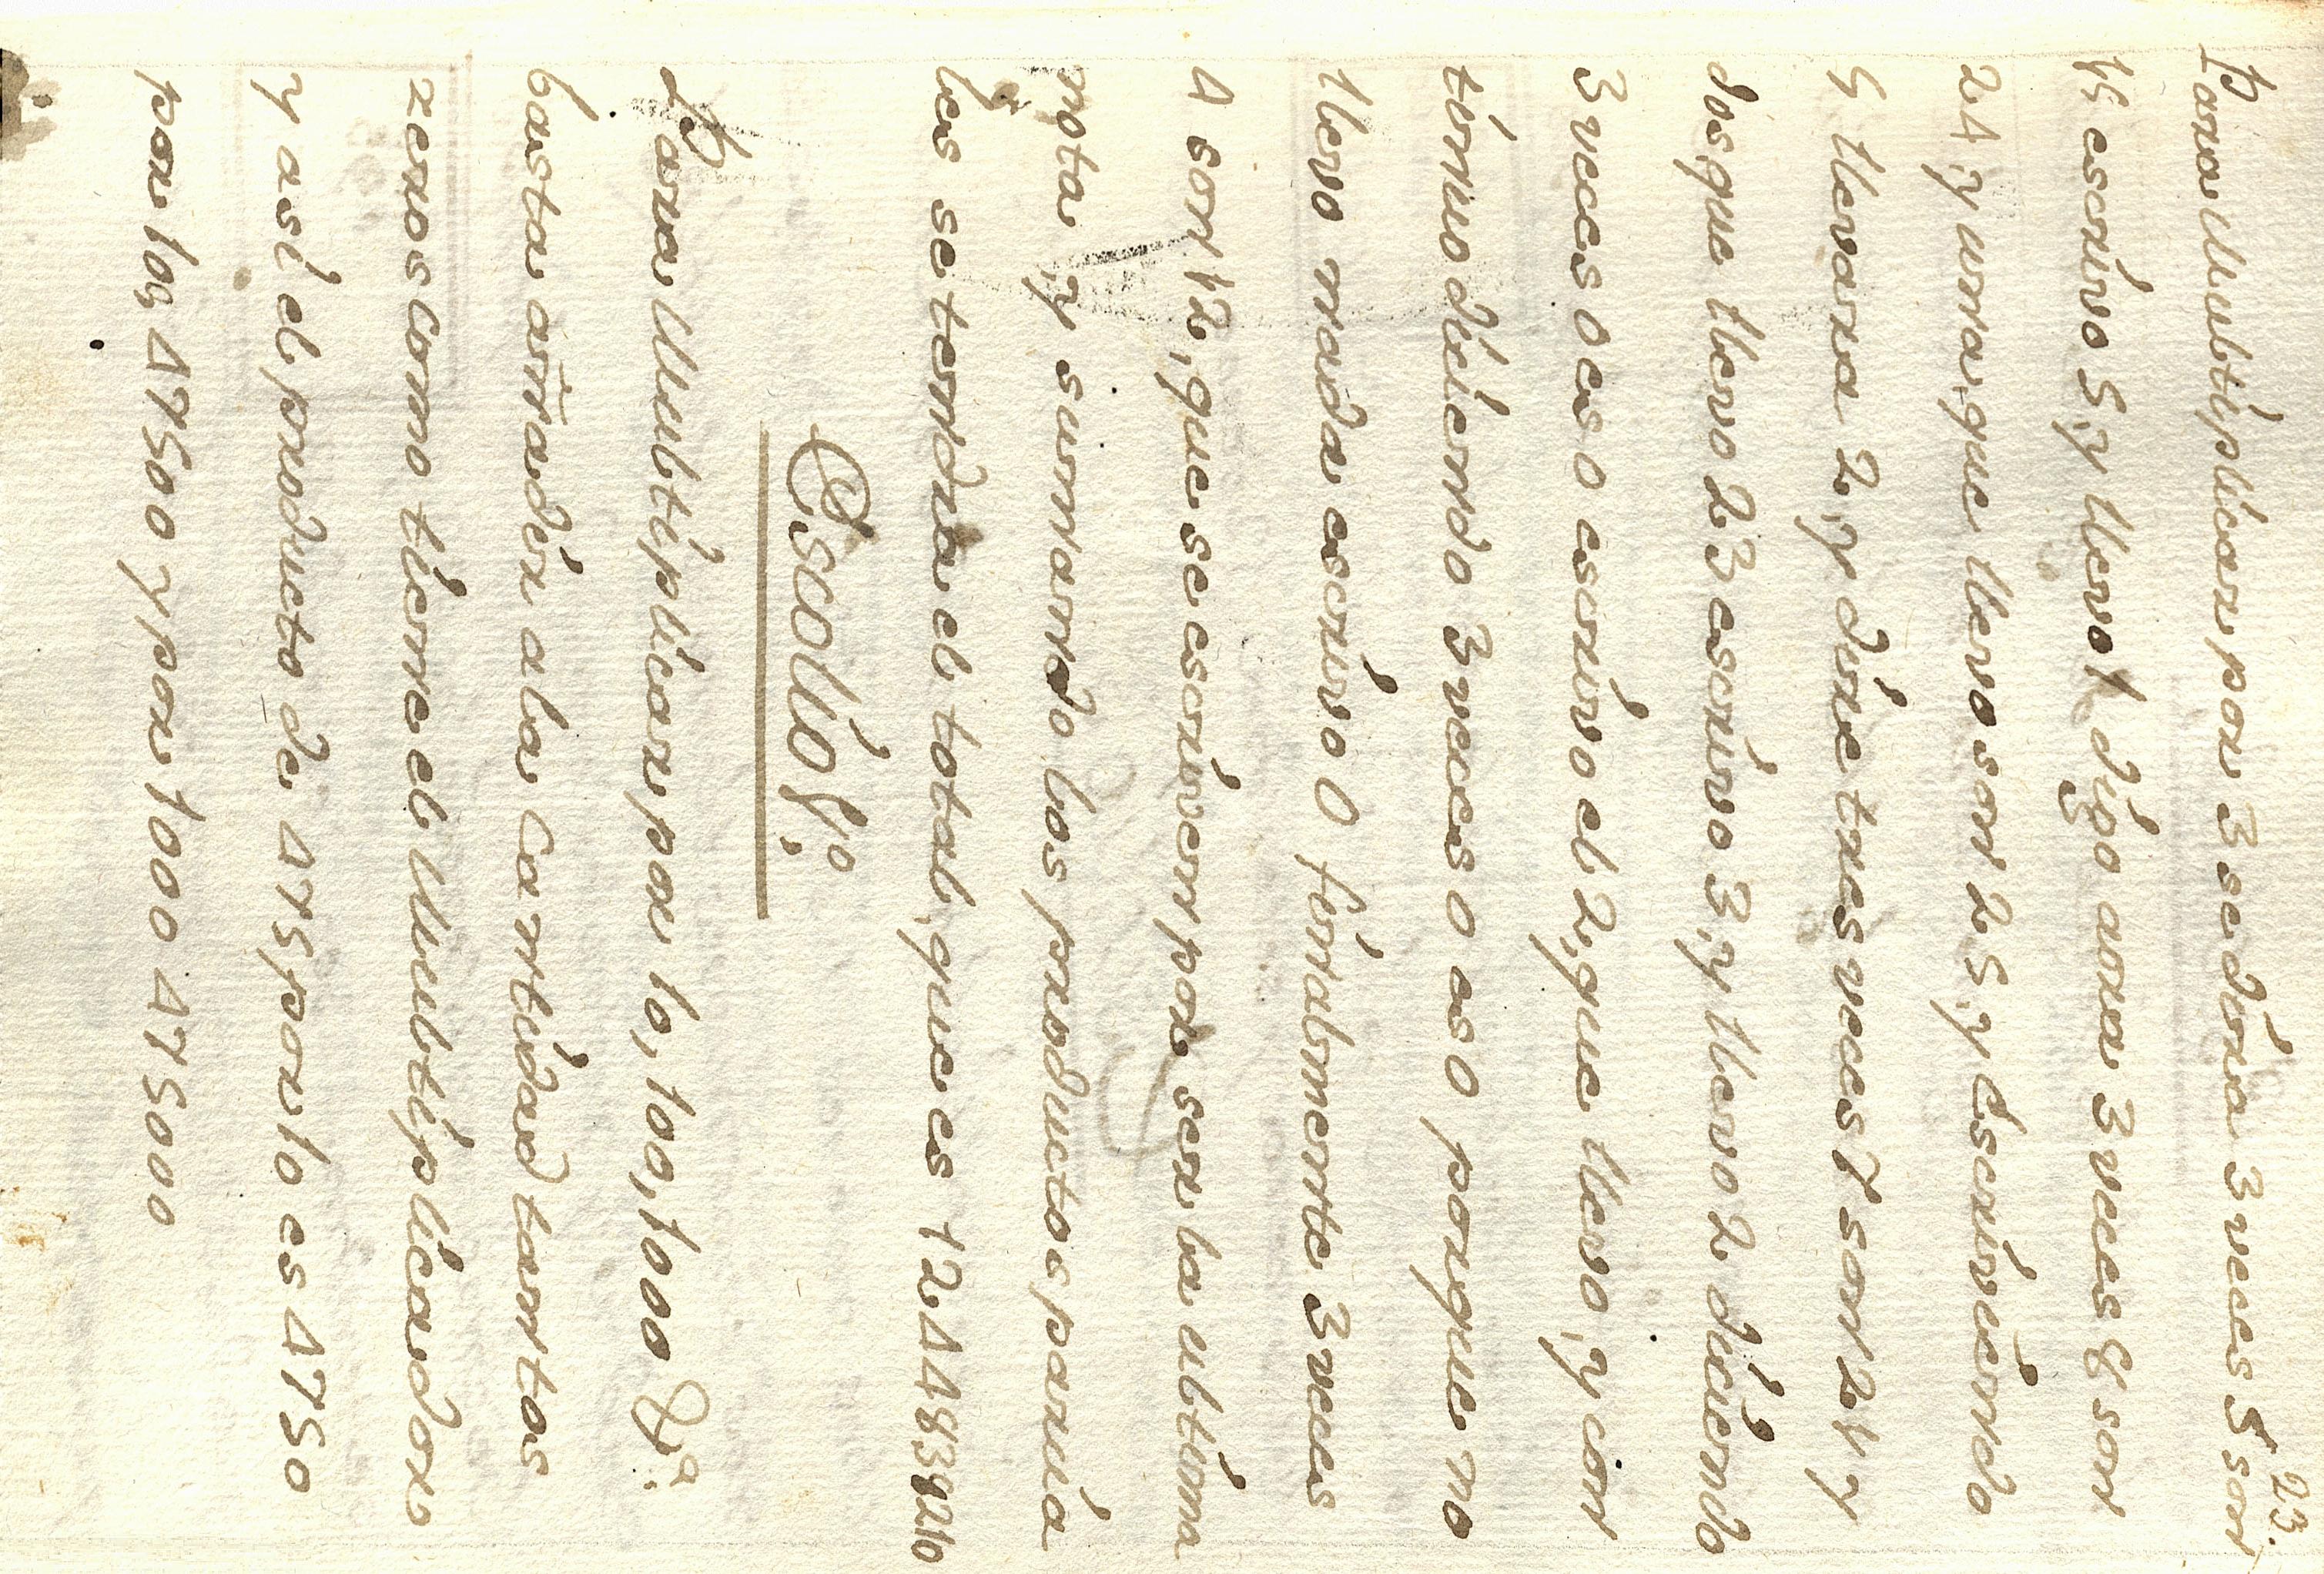 23.
Para Multiplicar por 3 se dirà 3 veces 5 son
15 escrivo 5, y llevo 1 digo aora 3 veces 8 son
24, y una, que llevo son 25, y Escriviendo
5 llevarà 2, y dire tres veces 7 son 21 y
dos, que llevo 23 escrivo 3, y llevo 2 diciendo
3 veces 0 es 0 escrivo el 2, que llevo, y con
tinuo diciendo 3 veces 0 es 0 porque no
llevo nada escrivo 0 finalmente 3 veces
4 son 12, que se escriven por ser la ultima
nota, y sumando los productos parcia
les se tendra el total, que es
Escolio 1.º
Para Multiplicar por 10, 100, 1000 &ª.
basta añadir a la Cantidad tantos
zeros como tiene el Multiplicador
y asi el producto de 475 por 10 es 4750
por 100 47500 y por 1000 475000